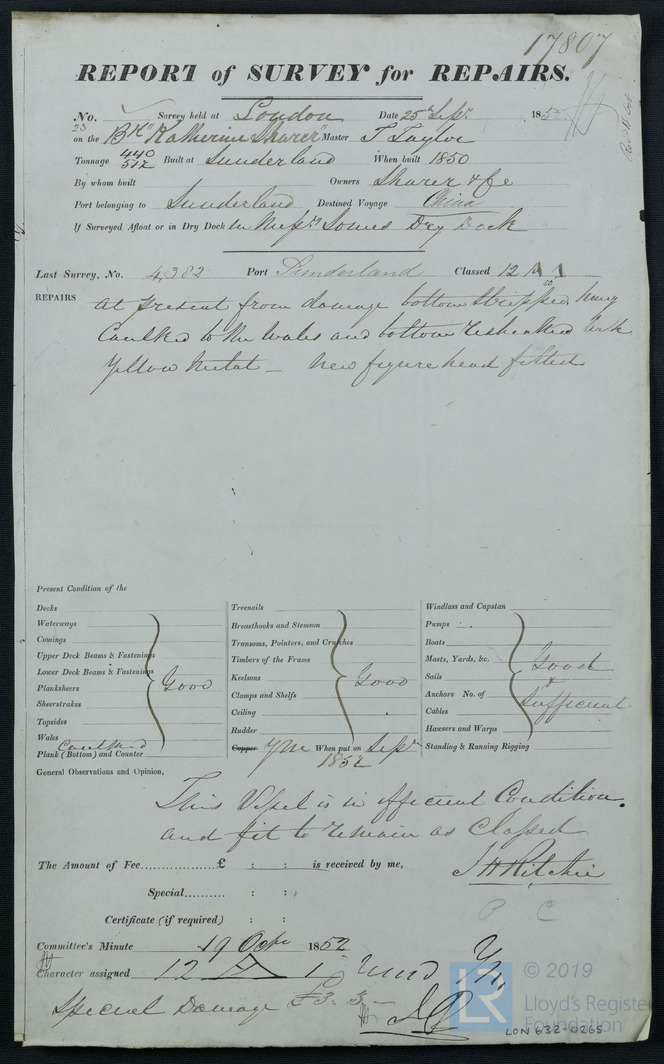 17807
REPORT of SURVEY for REPAIRS.
No. Survey held at London Date 25th Sept. 1852
23
on the Bk "Katherine Sharer" Master T Taylor
Tonnage 440 512 Built at Sunderland When built 1850
By whom built Owners Sharer & Co
Port belonging to Sunderland Destined Voyage China
If Surveyed Afloat or in Dry Dock In Messrs Somes Dry Dock
Last Survey, No. 4,382 Port Sunderland Classed 12 A 1
REPAIRS at present from damage bottom stripped
Caulked to the Wales and bottom resheathed with
Yellow Metal — New figure head fitted
Present Condition of the
Decks
Waterways
Comings
Upper Deck Beams & Fastenings
Lower Deck Beams & Fastenings
Planksheers
Sheerstrakes
Topsides
Wales
Plank (Bottom) and Counter
Good
Caulked
Treenails
Breasthooks and Stemson
Transoms, Pointers, and Crutches
Timbers of the Frame
Keelsons
Clamps and Shelfs
Ceiling
Rudder
Good
Copper YM When put on Sept
1852
Windlass and Capstan
Pumps
Boats
Masts, Yards, &c.
Sails
Anchors No. of
Cables
Hawsers and Warps
Standing & Running Rigging
Good
&
Sufficient
General Observations and Opinion,
This Vessel is in efficient Condition.
and fit to remain as Classed
The Amount of Fee £ : : is received by me,
J H Ritchie
Special : :
Certificate (if required) : :
Committee's Minute 19 Octr 1852
Character assigned 12 A 1
Special Damage £3.3.-
LR
© 2019
Lloyd's Register
Foundation
LON 632-0265